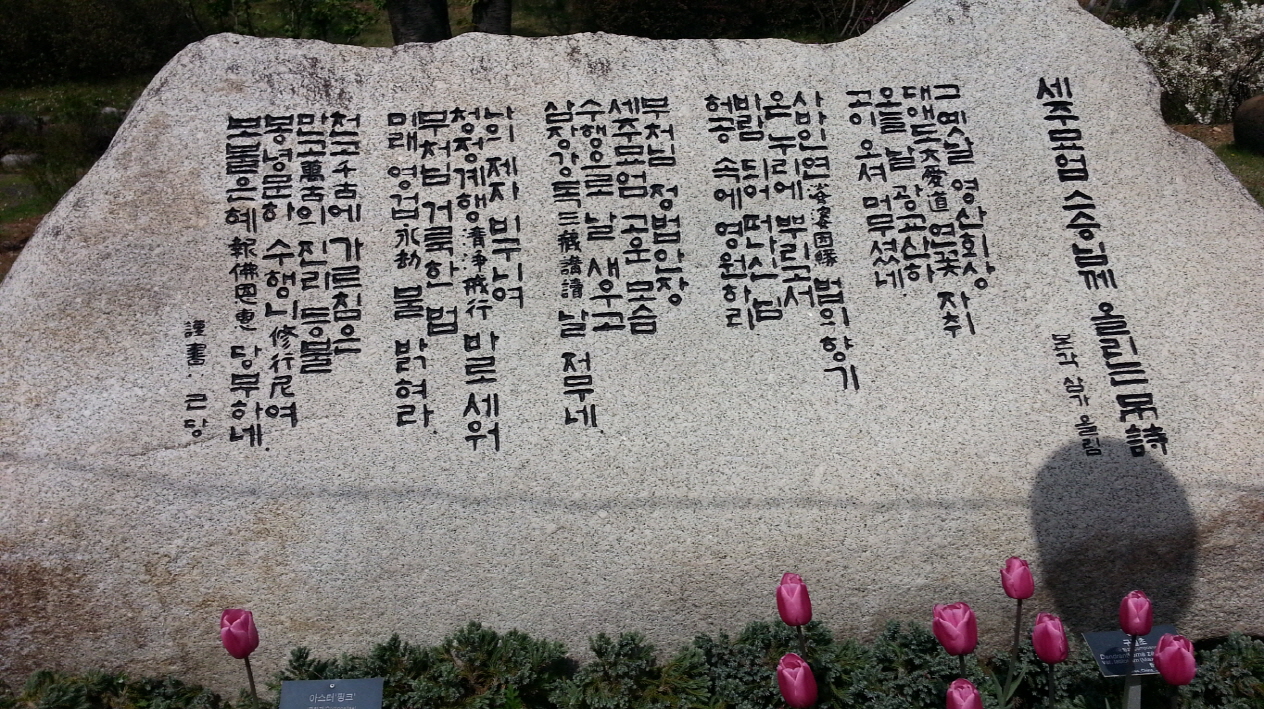 세주묘엄 스승님께 올리는 弔詩
본각 삼가 올림
그 옛날 영산회상
대애도大愛道 연꽃 자취
오늘 날 광교산하
고이 오셔 머무셨네.
사바인연娑婆因緣 법의향기
온 누리에 뿌리고서
바람 되어 떠나신 님
허공 속에 영원하리
부처님 정법안장
세주묘엄 고운 모습
수행으로 날 새우고
삼장강독三藏講讀 날 저무네.
남의 제자 비구니여
청정계행淸淨戒行 바로 세워
부처님 거룩한 법
미래 영겁永劫 불 밝혀라.
천고千古에 가르침은
만고萬古의 진리 등불
봉녕문하 수행니修行尼여
보불은혜報佛恩惠 당부하네.
謹書·근당
아스터'핑크'
구절초